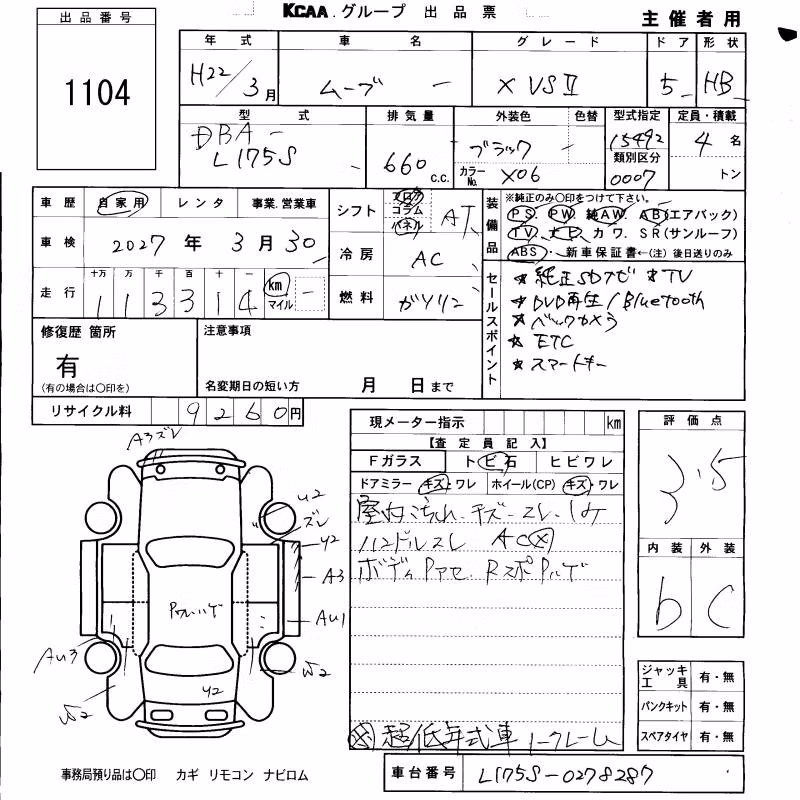 KCAA グループ 出品票
主催者用
出品番号
1104
年式 車名 グレード ドア 形状
H22/3月 ムーブ - X VSⅡ 5 HB
型式 排気量 外装色 色替 型式指定 定員・積載
DBA- L175S 660 c.c. ブラック 15492 4名
カラーNo. X06 類別区分 0007 トン
車歴 自家用 レンタ 事業.営業車
車検 2027年 3月 30
走行 十万 万 千 百 十 一 km マイル
113314
シフト フロア コラム パネル AT
冷房 AC
燃料 ガソリン
装備品 ※純正のみ〇印をつけて下さい。
PS. PW. 純AW. AB(エアバック)
TV. ナビ. カワ. SR(サンルーフ)
ABS. 新車保証書←(注) 後日送りのみ
セールスポイント
☆純正SDナビ ☆TV
☆DVD再生/Bluetooth
☆バックカメラ
☆ETC
☆スマートキー
修復歴 箇所 注意事項
有
(有の場合は〇印を) 名変期日の短い方 月 日まで
リサイクル料 9260円
現メーター指示 km
【査定員記入】
Fガラス トビ石 ヒビワレ
ドアミラー キズ・ワレ ホイール(CP) キズ・ワレ
室内汚れ.キズ.スレ.
ハンドルスレ
ボディ
超低年式車 ノークレーム
評価点
3.5
内装 外装
b C
ジャッキ工具 有・無
パンクキット 有・無
スペアタイヤ 有・無
A3ズレ
U2
ズレ
U2
A3
AU1
AU3
W2
W2
U2
事務局預り品は〇印 カギ リモコン ナビロム
車台番号 L175S-0278287